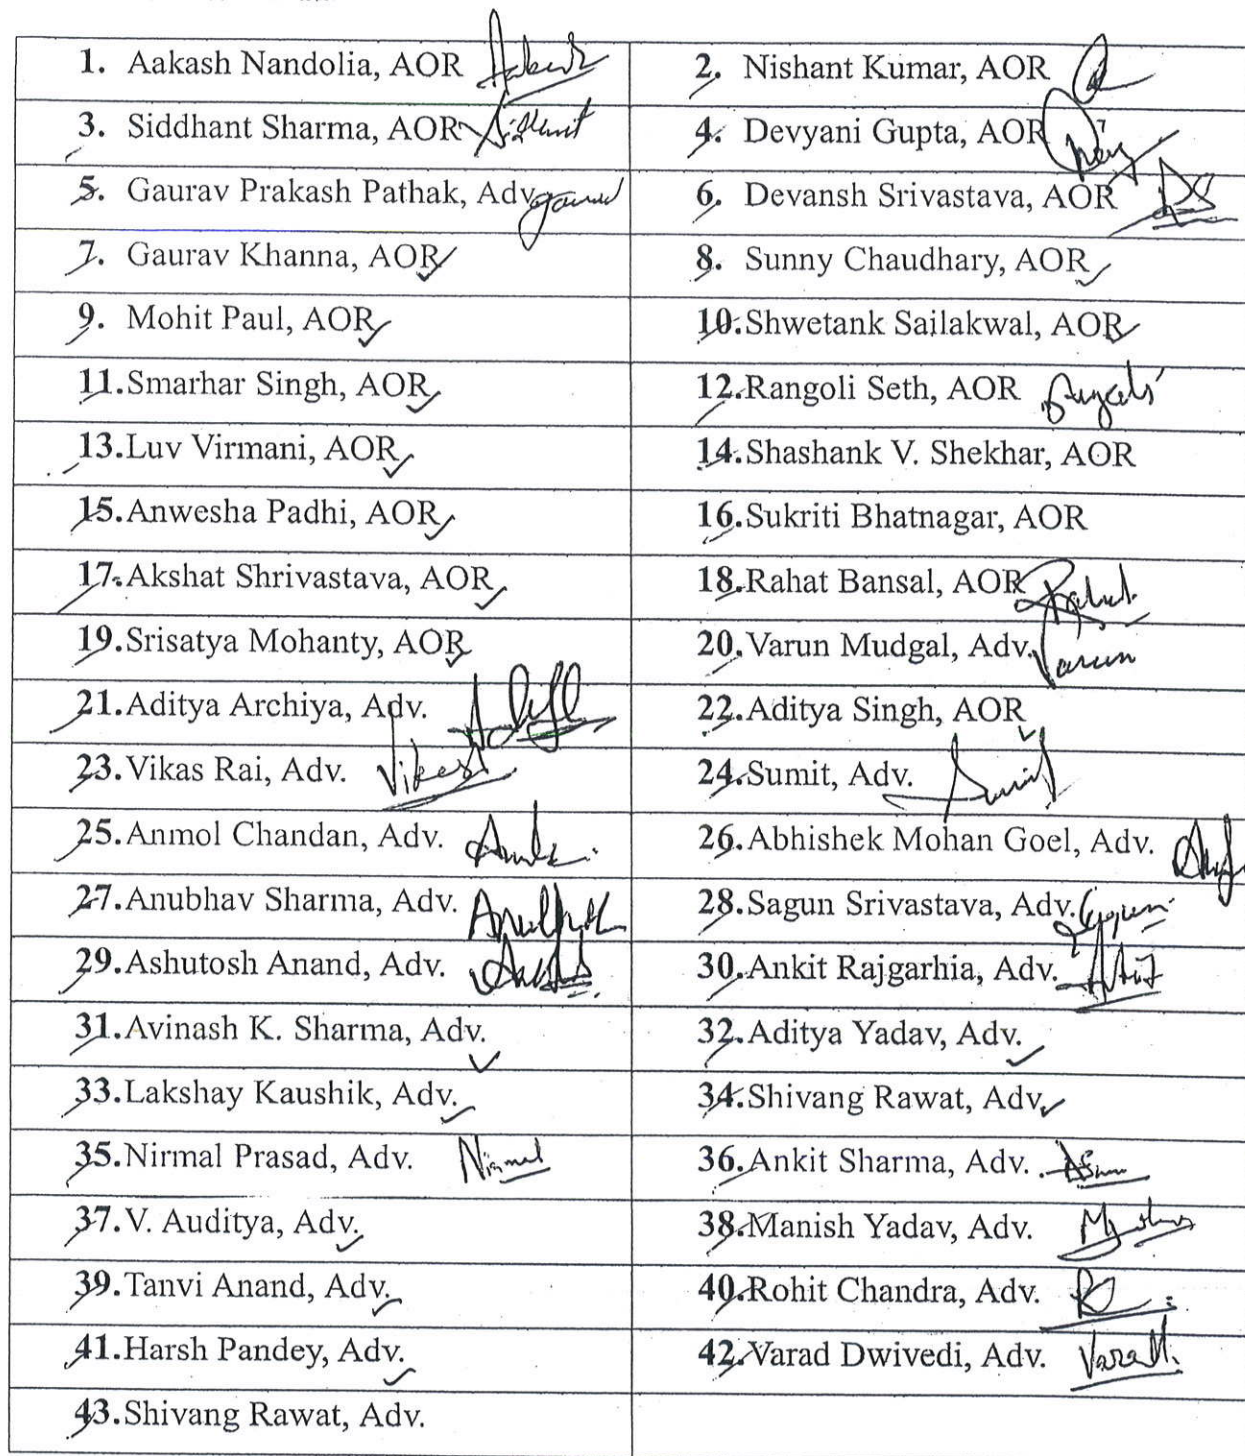 1. Aakash Nandolia, AOR Aakash
2. Nishant Kumar, AOR
3. Siddhant Sharma, AOR Siddhant
4. Devyani Gupta, AOR
5. Gaurav Prakash Pathak, Adv. Gaurav
6. Devansh Srivastava, AOR DS
7. Gaurav Khanna, AOR
8. Sunny Chaudhary, AOR
9. Mohit Paul, AOR
10. Shwetank Sailakwal, AOR
11. Smarhar Singh, AOR
12. Rangoli Seth, AOR
13. Luv Virmani, AOR
14. Shashank V. Shekhar, AOR
15. Anwesha Padhi, AOR
16. Sukriti Bhatnagar, AOR
17. Akshat Shrivastava, AOR
18. Rahat Bansal, AOR Rahat
19. Srisatya Mohanty, AOR
20. Varun Mudgal, Adv. Varun
21. Aditya Archiya, Adv.
22. Aditya Singh, AOR
23. Vikas Rai, Adv. Vikas
24. Sumit, Adv. Sumit
25. Anmol Chandan, Adv.
26. Abhishek Mohan Goel, Adv.
27. Anubhav Sharma, Adv.
28. Sagun Srivastava, Adv.
29. Ashutosh Anand, Adv.
30. Ankit Rajgarhia, Adv.
31. Avinash K. Sharma, Adv.
32. Aditya Yadav, Adv.
33. Lakshay Kaushik, Adv.
34. Shivang Rawat, Adv.
35. Nirmal Prasad, Adv. Nirmal
36. Ankit Sharma, Adv.
37. V. Auditya, Adv.
38. Manish Yadav, Adv.
39. Tanvi Anand, Adv.
40. Rohit Chandra, Adv.
41. Harsh Pandey, Adv.
42. Varad Dwivedi, Adv.
43. Shivang Rawat, Adv.